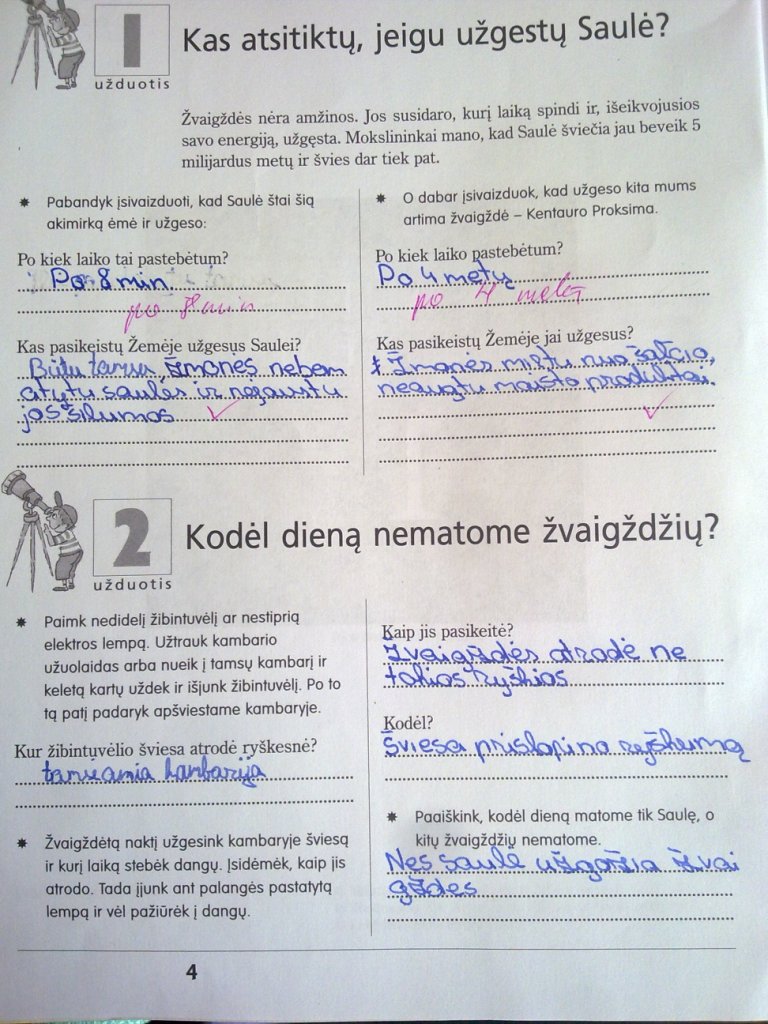 1
užduotis
Kas atsitiktų, jeigu užgestų Saulė?
Žvaigždės nėra amžinos. Jos susidaro, kurį laiką spindi ir, išeikvojusios
savo energiją, užgęsta. Mokslininkai mano, kad Saulė šviečia jau beveik 5
milijardus metų ir švies dar tiek pat.
Pabandyk įsivaizduoti, kad Saulė štai šią
akimirką ėmė ir užgeso:
Po kiek laiko tai pastebėtum?
Po 8 min.
po 8 min
Kas pasikeistų Žemėje užgesus Saulei?
Būtų tamsu, žmonės nebem
atytų saulės ir negaustu
jos šilumos
O dabar įsivaizduok, kad užgeso kita mums
artima žvaigždė – Kentauro Proksima.
Po kiek laiko pastebėtum?
Po 4 metų
po 4 metų
Kas pasikeistų Žemėje jai užgesus?
Žmonės mirtų nuo šalčio,
neaugtu maisto produktai.
2
užduotis
Kodėl dieną nematome žvaigždžių?
Paimk nedidelį žibintuvėlį ar nestiprią
elektros lempą. Užtrauk kambario
užuolaidas arba nueik į tamsų kambarį ir
keletą kartų uždek ir išjunk žibintuvėlį. Po to
tą patį padaryk apšviestame kambaryje.
Kur žibintuvėlio šviesa atrodė ryškesnė?
Žvaigždėtą naktį užgesink kambaryje šviesą
ir kurį laiką stebėk dangų. Įsidėmėk, kaip jis
atrodo. Tada įjunk ant palangės pastatytą
lempą ir vėl pažiūrėk į dangų.
Kaip jis pasikeitė?
Žvaigždės atrodė ne
tokios ryškios
Kodėl?
Šviesa prislopino ryškumą
Paaiškink, kodėl dieną matome tik Saulę, o
kitų žvaigždžių nematome.
Nes saulė užgožia žvai
gždes
4